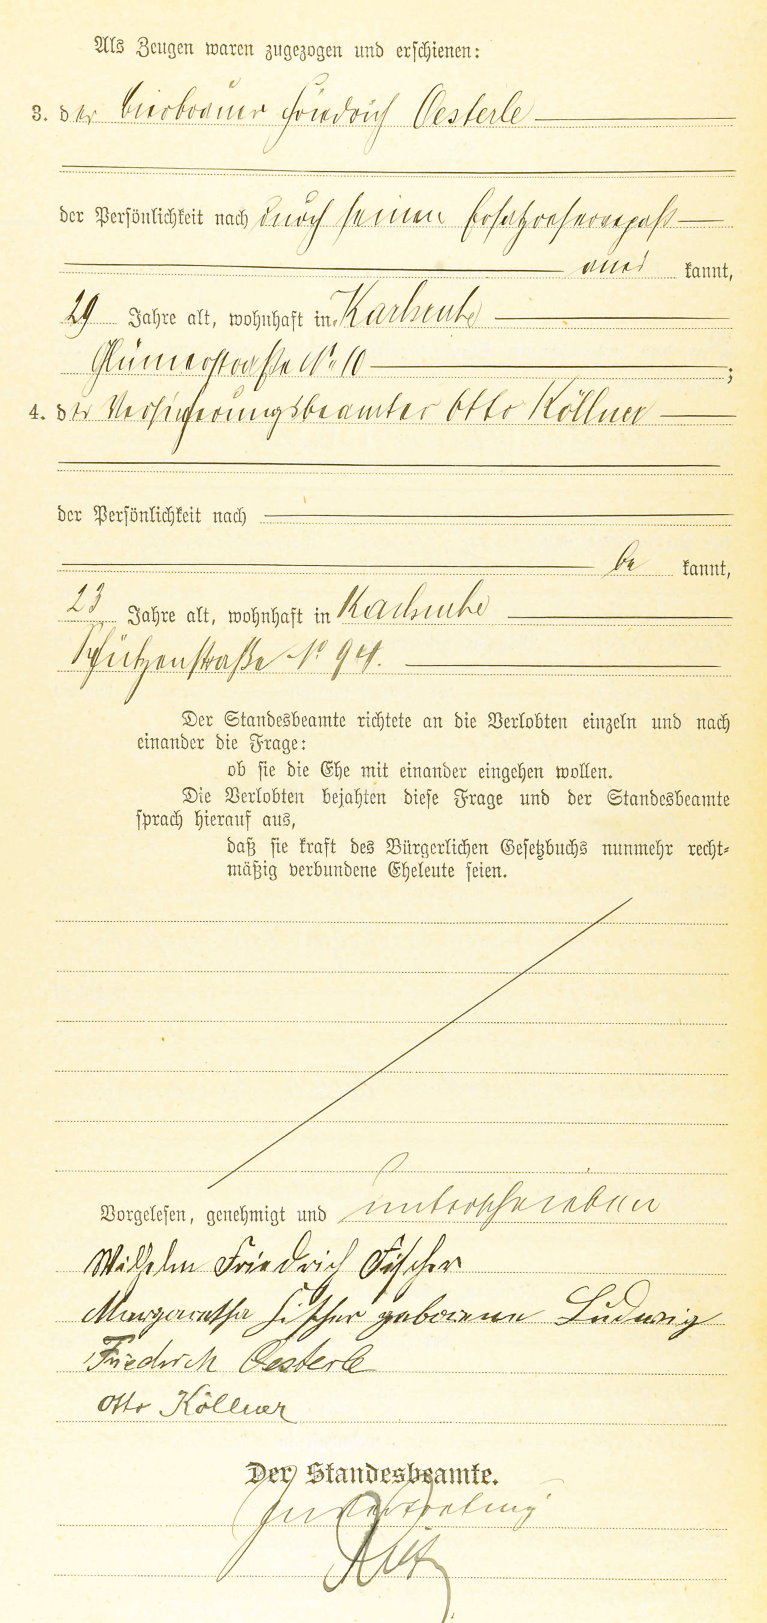 Als Zeugen waren zugezogen und erschienen:
3. der Bierbrauer Friedrich Oesterle
der Persönlichkeit nach durch seinen Ersatzreservepaß
aner kannt,
29 Jahre alt, wohnhaft in Karlsruhe
Glümerstraße No 10 ;
4. der Versicherungsbeamter Otto Köllner
der Persönlichkeit nach
be kannt,
23 Jahre alt, wohnhaft in Karlsruhe
Schützenstraße No 94.
Der Standesbeamte richtete an die Verlobten einzeln und nach
einander die Frage:
ob sie die Ehe mit einander eingehen wollen.
Die Verlobten bejahten diese Frage und der Standesbeamte
sprach hierauf aus,
daß sie kraft des Bürgerlichen Gesetzbuchs nunmehr recht-
mäßig verbundene Eheleute seien.
Vorgelesen, genehmigt und unterschrieben
Wilhelm Friedrich Fischer
Margaretha Fischer geborene Ludwig
Friedrich Oesterle
Otto Köllner
Der Standesbeamte.
In Vertretung